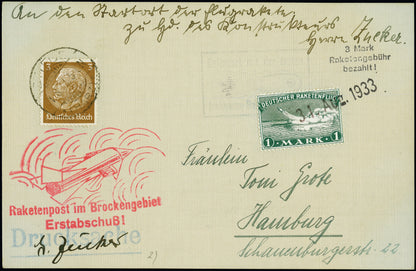 An den Startort der Flugrakete
zu Hd. des Konstrukteurs
Herrn Zucker.
3 Mark
Raketengebühr
bezahlt!
Deutsches Reich
DEUTSCHER RAKETENFLUG
1 MARK 1
31. Aug. 1933
Raketenpost im Brockengebiet
Erstabschuß!
Drucksache
G. Zucker
Fräulein
Toni Grote
Hamburg
Schauenburgerstr. 22